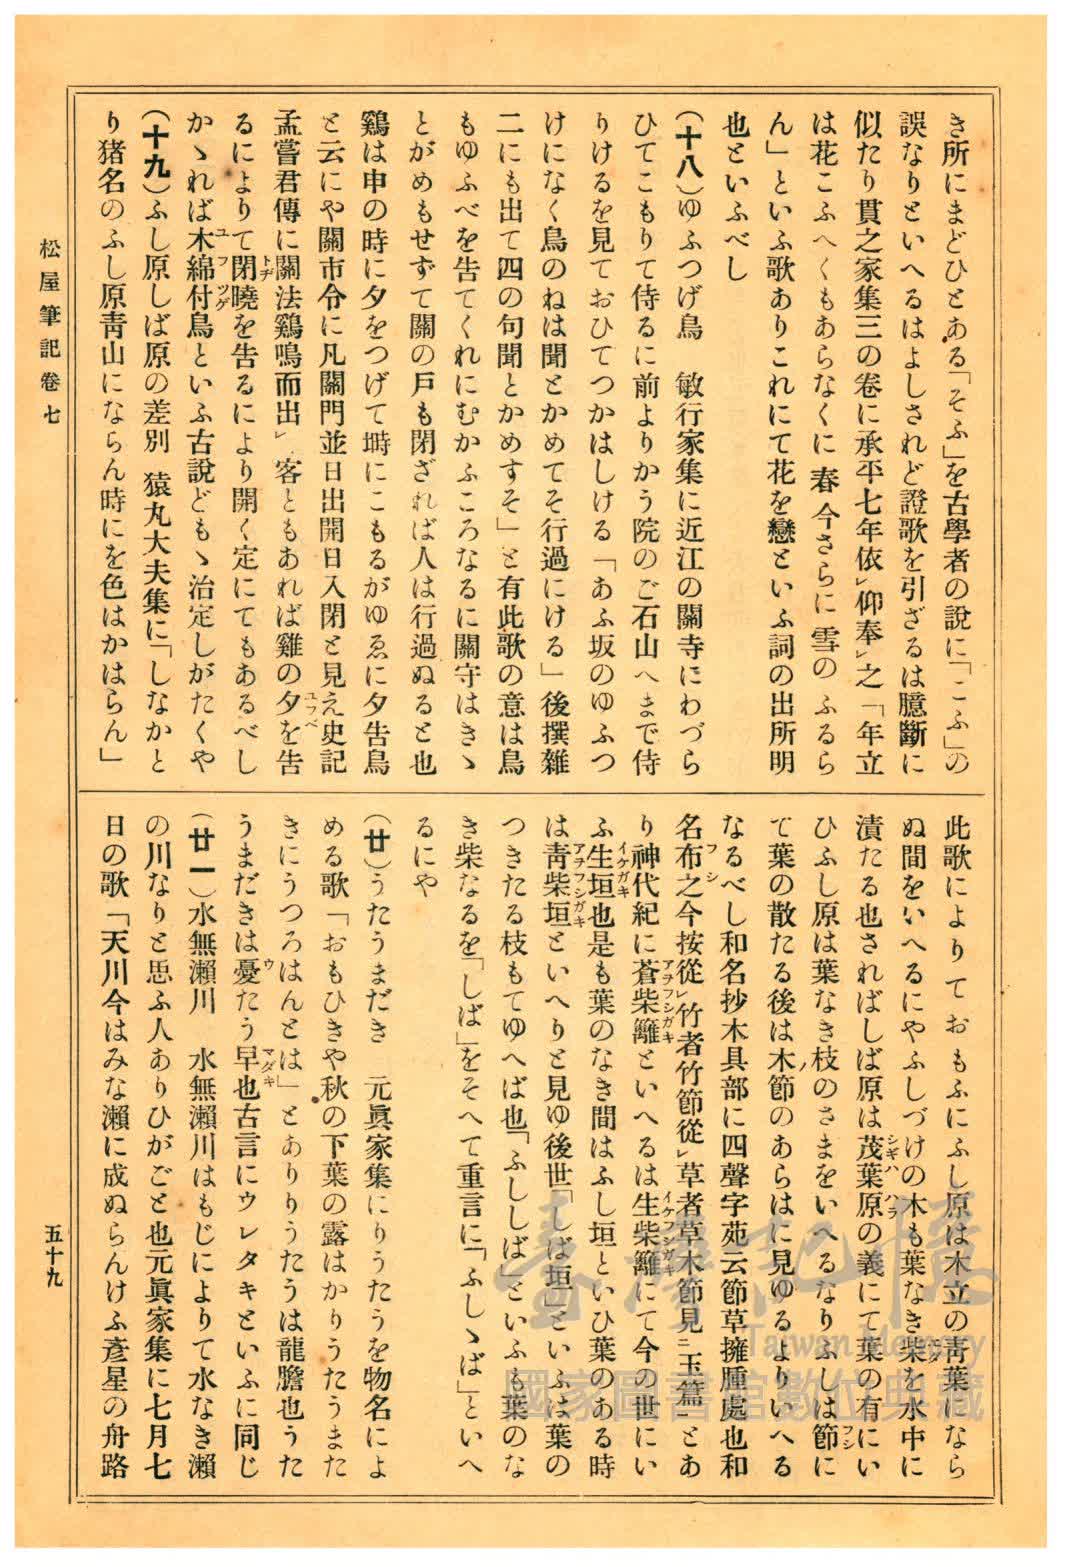 き所にまどひとある「そふ」を古學者の說に「こふ」の
誤なりといへるはよしされど證歌を引ざるは臆斷に
似たり貫之家集三の卷に承平七年依㆑仰奉㆑之「年立
は花こふへくもあらなくに春今さらに雪のふるら
ん」といふ歌ありこれにて花を戀といふ詞の出所明
也といふべし
(十八)ゆふつげ鳥　敏行家集に近江の關寺にわづら
ひてこもりて侍るに前よりかう院のご石山へまで侍
りけるを見ておひてつかはしける「あふ坂のゆふつ
けになく鳥のねは聞とかめてそ行過にける」後撰雜
二にも出て四の句聞とかめすそ」と有此歌の意は鳥
もゆふべを告てくれにむかふころなるに關守はきゝ
とがめもせずて關の戶も閉ざれば人は行過ぬると也
鷄は申の時に夕をつげて塒にこもるがゆゑに夕告鳥
と云にや關市令に凡關門並日出開日入閉と見え史記
孟嘗君傳に關法鷄鳴而出」客ともあれば雞の夕ユフベを告
るによりて閉トヂ曉を告るにより開く定にてもあるべし
かゝれば木綿付ユフツゲ鳥といふ古說どもゝ治定しがたくや
(十九)ふし原しば原の差別　猿丸大夫集に「しなかと
り猪名のふし原靑山にならん時にを色はかはらん」
此歌によりておもふにふし原は木立の靑葉になら
ぬ間をいへるにやふしづけの木も葉なき柴を水中に
漬たる也さればしば原は茂葉原シギハハラの義にて葉の有にい
ひふし原は葉なき枝のさまをいへるなりふしは節フシに
て葉の散たる後は木ノ節のあらはに見ゆるよりいへる
なるべし和名抄木具部に四聲字苑云節草擁腫處也和
名布之フシ今按從㆑竹者竹節從㆑草者草木節見㆓玉篇㆒とあ
り神代紀に蒼柴籬アヲフシガキといへるは生柴籬イケフシガキにて今の世にい
ふ生垣イケガキ也是も葉のなき間はふし垣といひ葉のある時
は靑柴垣アヲフシガキといへりと見ゆ後世「しば垣」といふは葉の
つきたる枝もてゆへば也「ふししば」といふも葉のな
き柴なるを「しば」をそへて重言に「ふしゝば」といへ
るにや
(廿)うたうまだき　元眞家集にりうたうを物名によ
める歌「おもひきや秋の下葉の露はかりうたうまた
きにうつろはんとは」とありりうたうは龍膽也うた
うまだきは憂ウたう早マダキ也古言にウレタキといふに同じ
(廿一)水無瀨川　水無瀨川はもじによりて水なき瀨
の川なりと思ふ人ありひがごと也元眞家集に七月七
日の歌「天川今はみな瀨に成ぬらんけふ彥星の舟路
松屋筆記卷七
五十九
臺灣記憶
Taiwan Memory
國家圖書館數位典藏